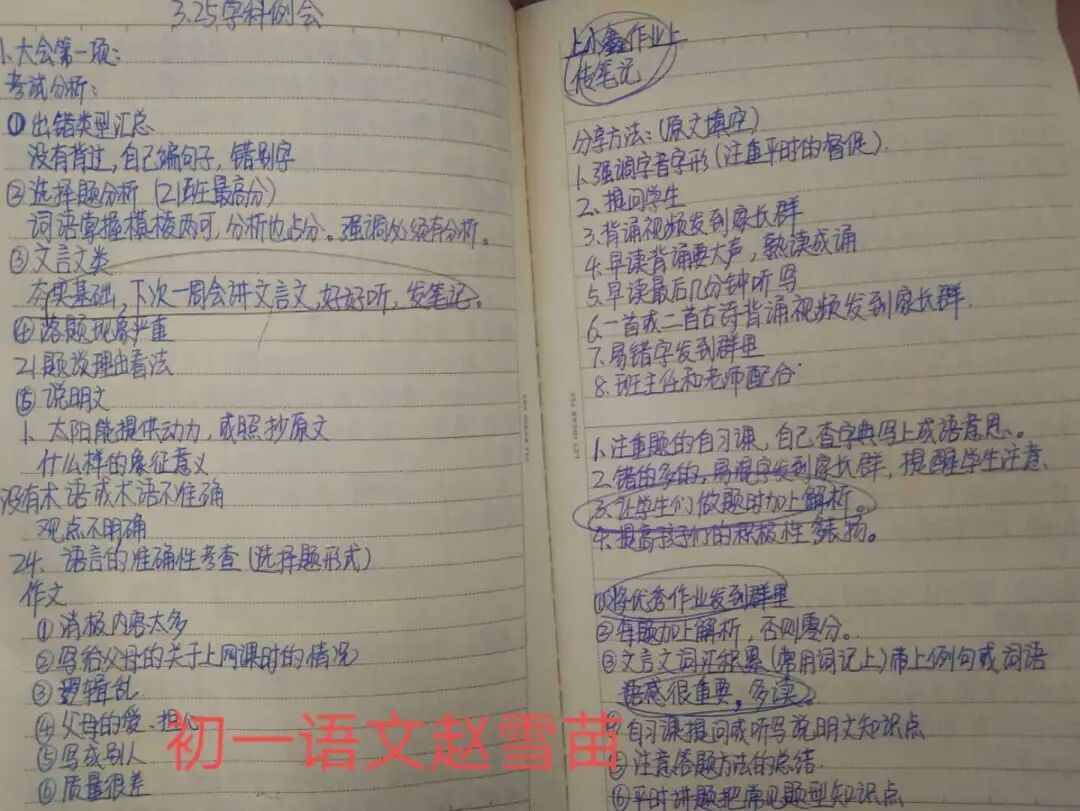 3.25学科例会
1.大会第一项:
考试分析:
①出错类型汇总
没有背过,自己编句子,错别字
②选择题分析(21班最高分)
词语掌握模棱两可,分析也占分。强调必须有分析。
③文言文类
夯实基础,下次一周会讲文言文,好好听,发笔记。
④落题现象严重
21题谈理由看法
⑤说明文
1、太阳能提供动力,或照抄原文
什么样的象征意义
没有术语或术语不准确
观点不明确
24、语言的准确性考查(选择题形式)
作文
①消极内容太多
②写给父母的关于上网课时的情况
③逻辑乱
④父母的爱、担心
⑤写成别人
⑥质量很差
上小鑫作业上
传笔记
分享方法:(原文填空)
1.强调字音字形(注重平时的督促)
2、提问学生
3.背诵视频发到家长群
4.早读背诵要大声,熟读成诵
5、早读最后几分钟听写
6.一首或二首古诗背诵视频发到家长群.
7.易错字发到群里
8.班主任和老师配合
1.注重题的自习课,自己查字典写上成语意思。
2.错的多的,易混字发到家长群,提醒学生注意
3.让学生们做题时加上解析。
4.提高孩子们的积极性 多表扬。
①将优秀作业发到群里
②每题加上解析,否则零分。
③文言文词汇积累(常用词记上)带上例句或词语
语感很重要,多读
自习课提问或听写说明文知识点
⑤注意答题方法的总结
⑥平时讲题把常见题型知识点
初一语文赵雪苗